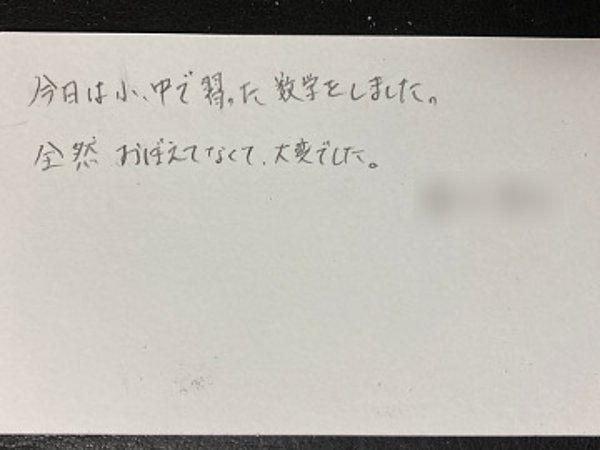 今日は小、中で習った数学をしました。
全然おぼえてなくて、大変でした。